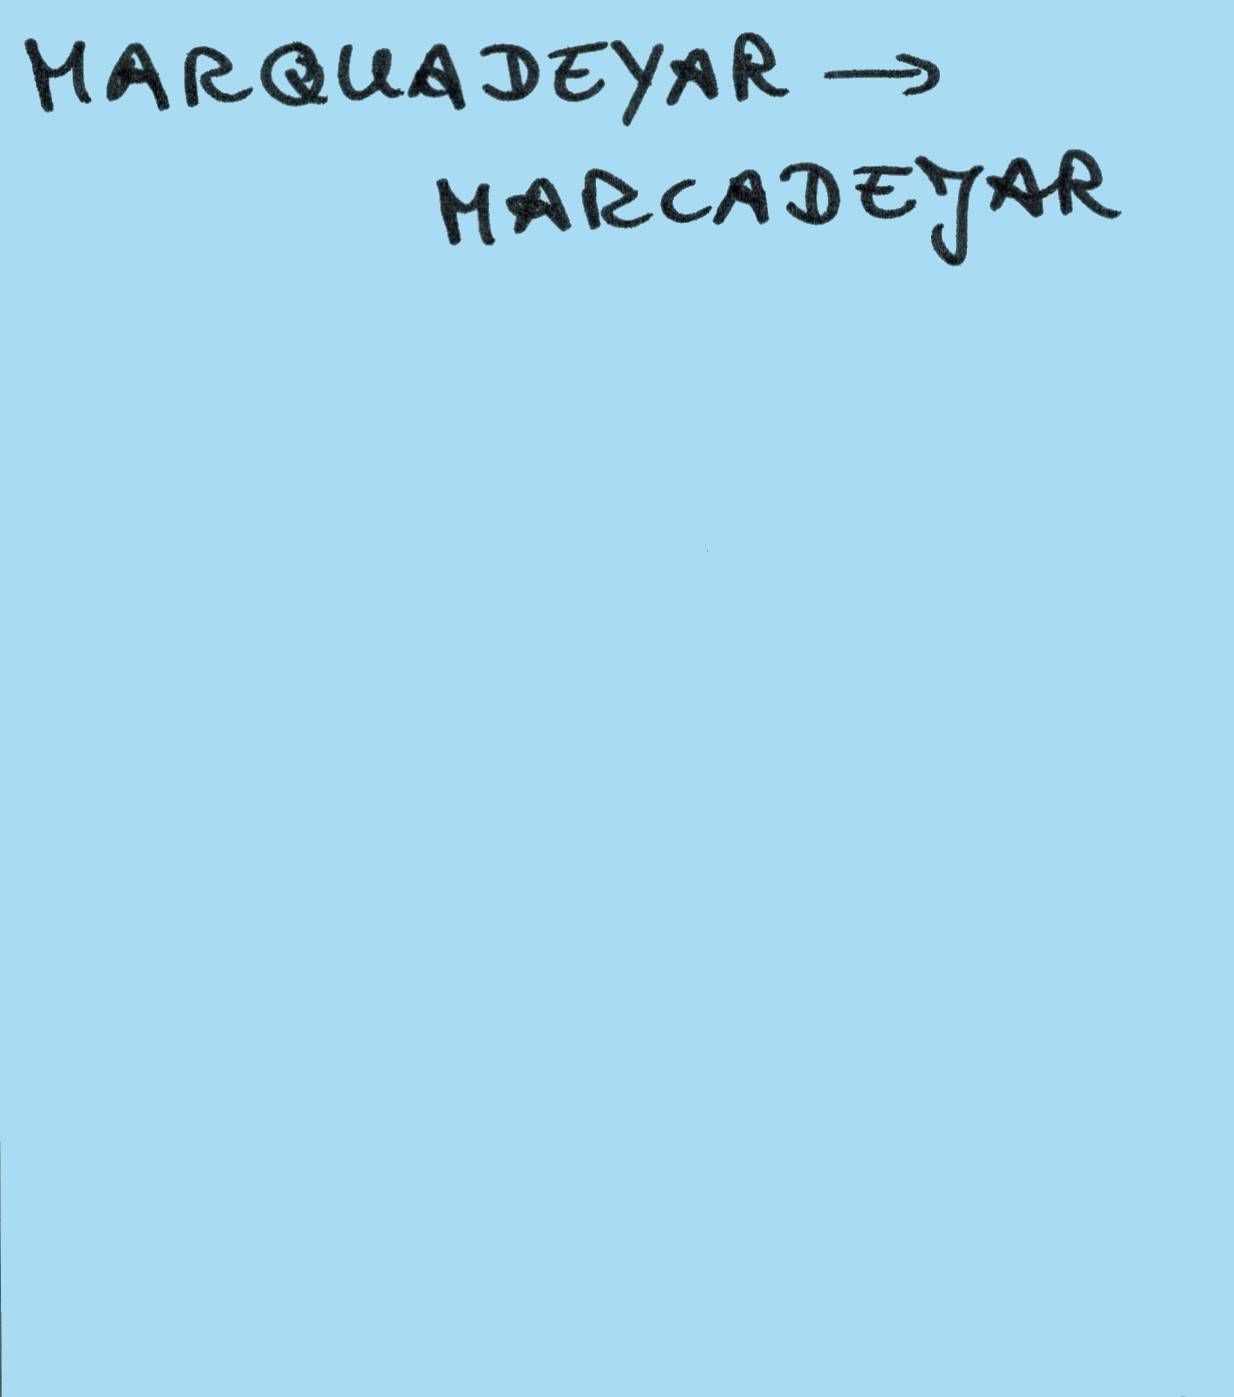 MARQUADEYAR →
MARCADEYAR